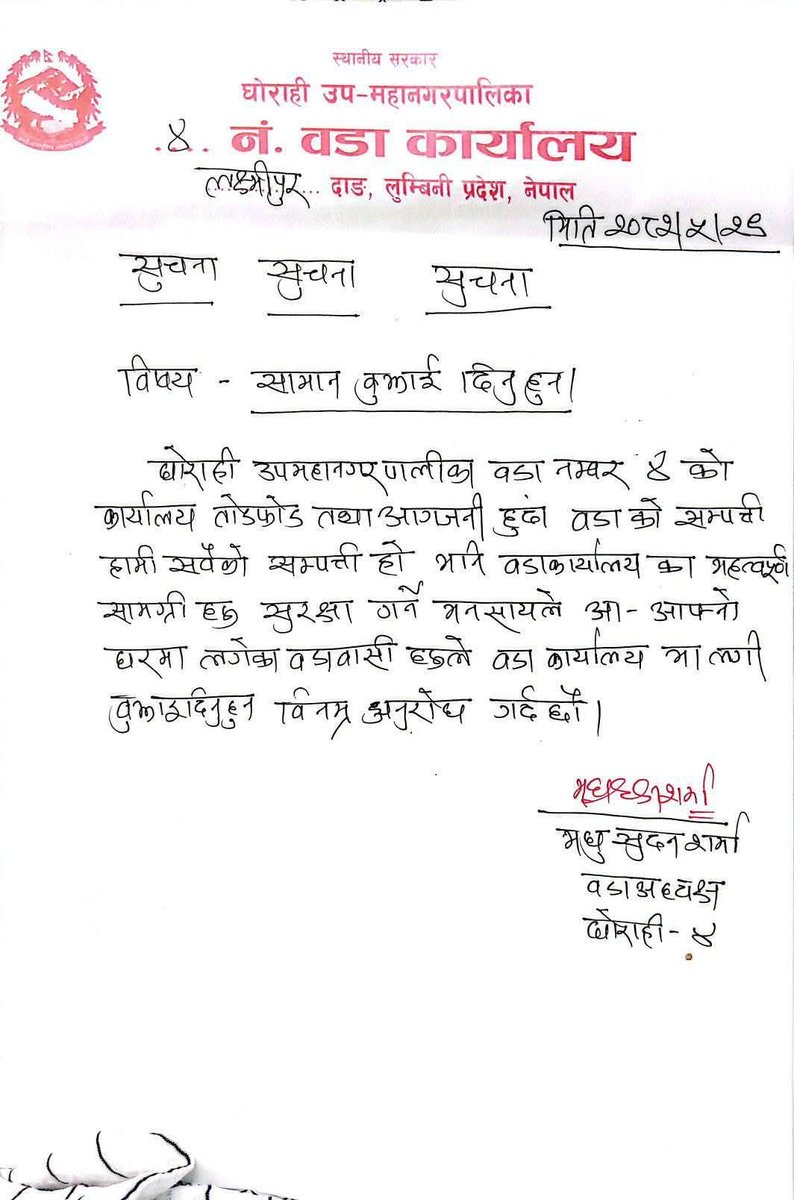 स्थानीय सरकार
घोराही उप-महानगरपालिका
.४.. नं. वडा कार्यालय
लक्ष्मीपुर... दाङ, लुम्बिनी प्रदेश, नेपाल
मिति २०८२|५|२९
सुचना सुचना सुचना
विषय - सामान बुझाई दिनुहुन।
घोराही उपमहानगरपालीका वडा नम्बर ४ को
कार्यालय तोडफोड तथा आगजनी हुदा वडा को सम्पत्ती
हामी सवैको सम्पत्ती हो भनि वडाकार्यालय का महत्वपूर्ण
सामग्री हरु सुरक्षा गर्ने मनसायले आ-आफ्नो
घरमा लगेका वडावासी हरुले वडा कार्यालय मा ल्गी
बुझाइदिनुहुन विनम्र अनुरोध गर्दछौं।
मधु सुदन शर्मा
वडा अध्यक्ष
घोराही - ४